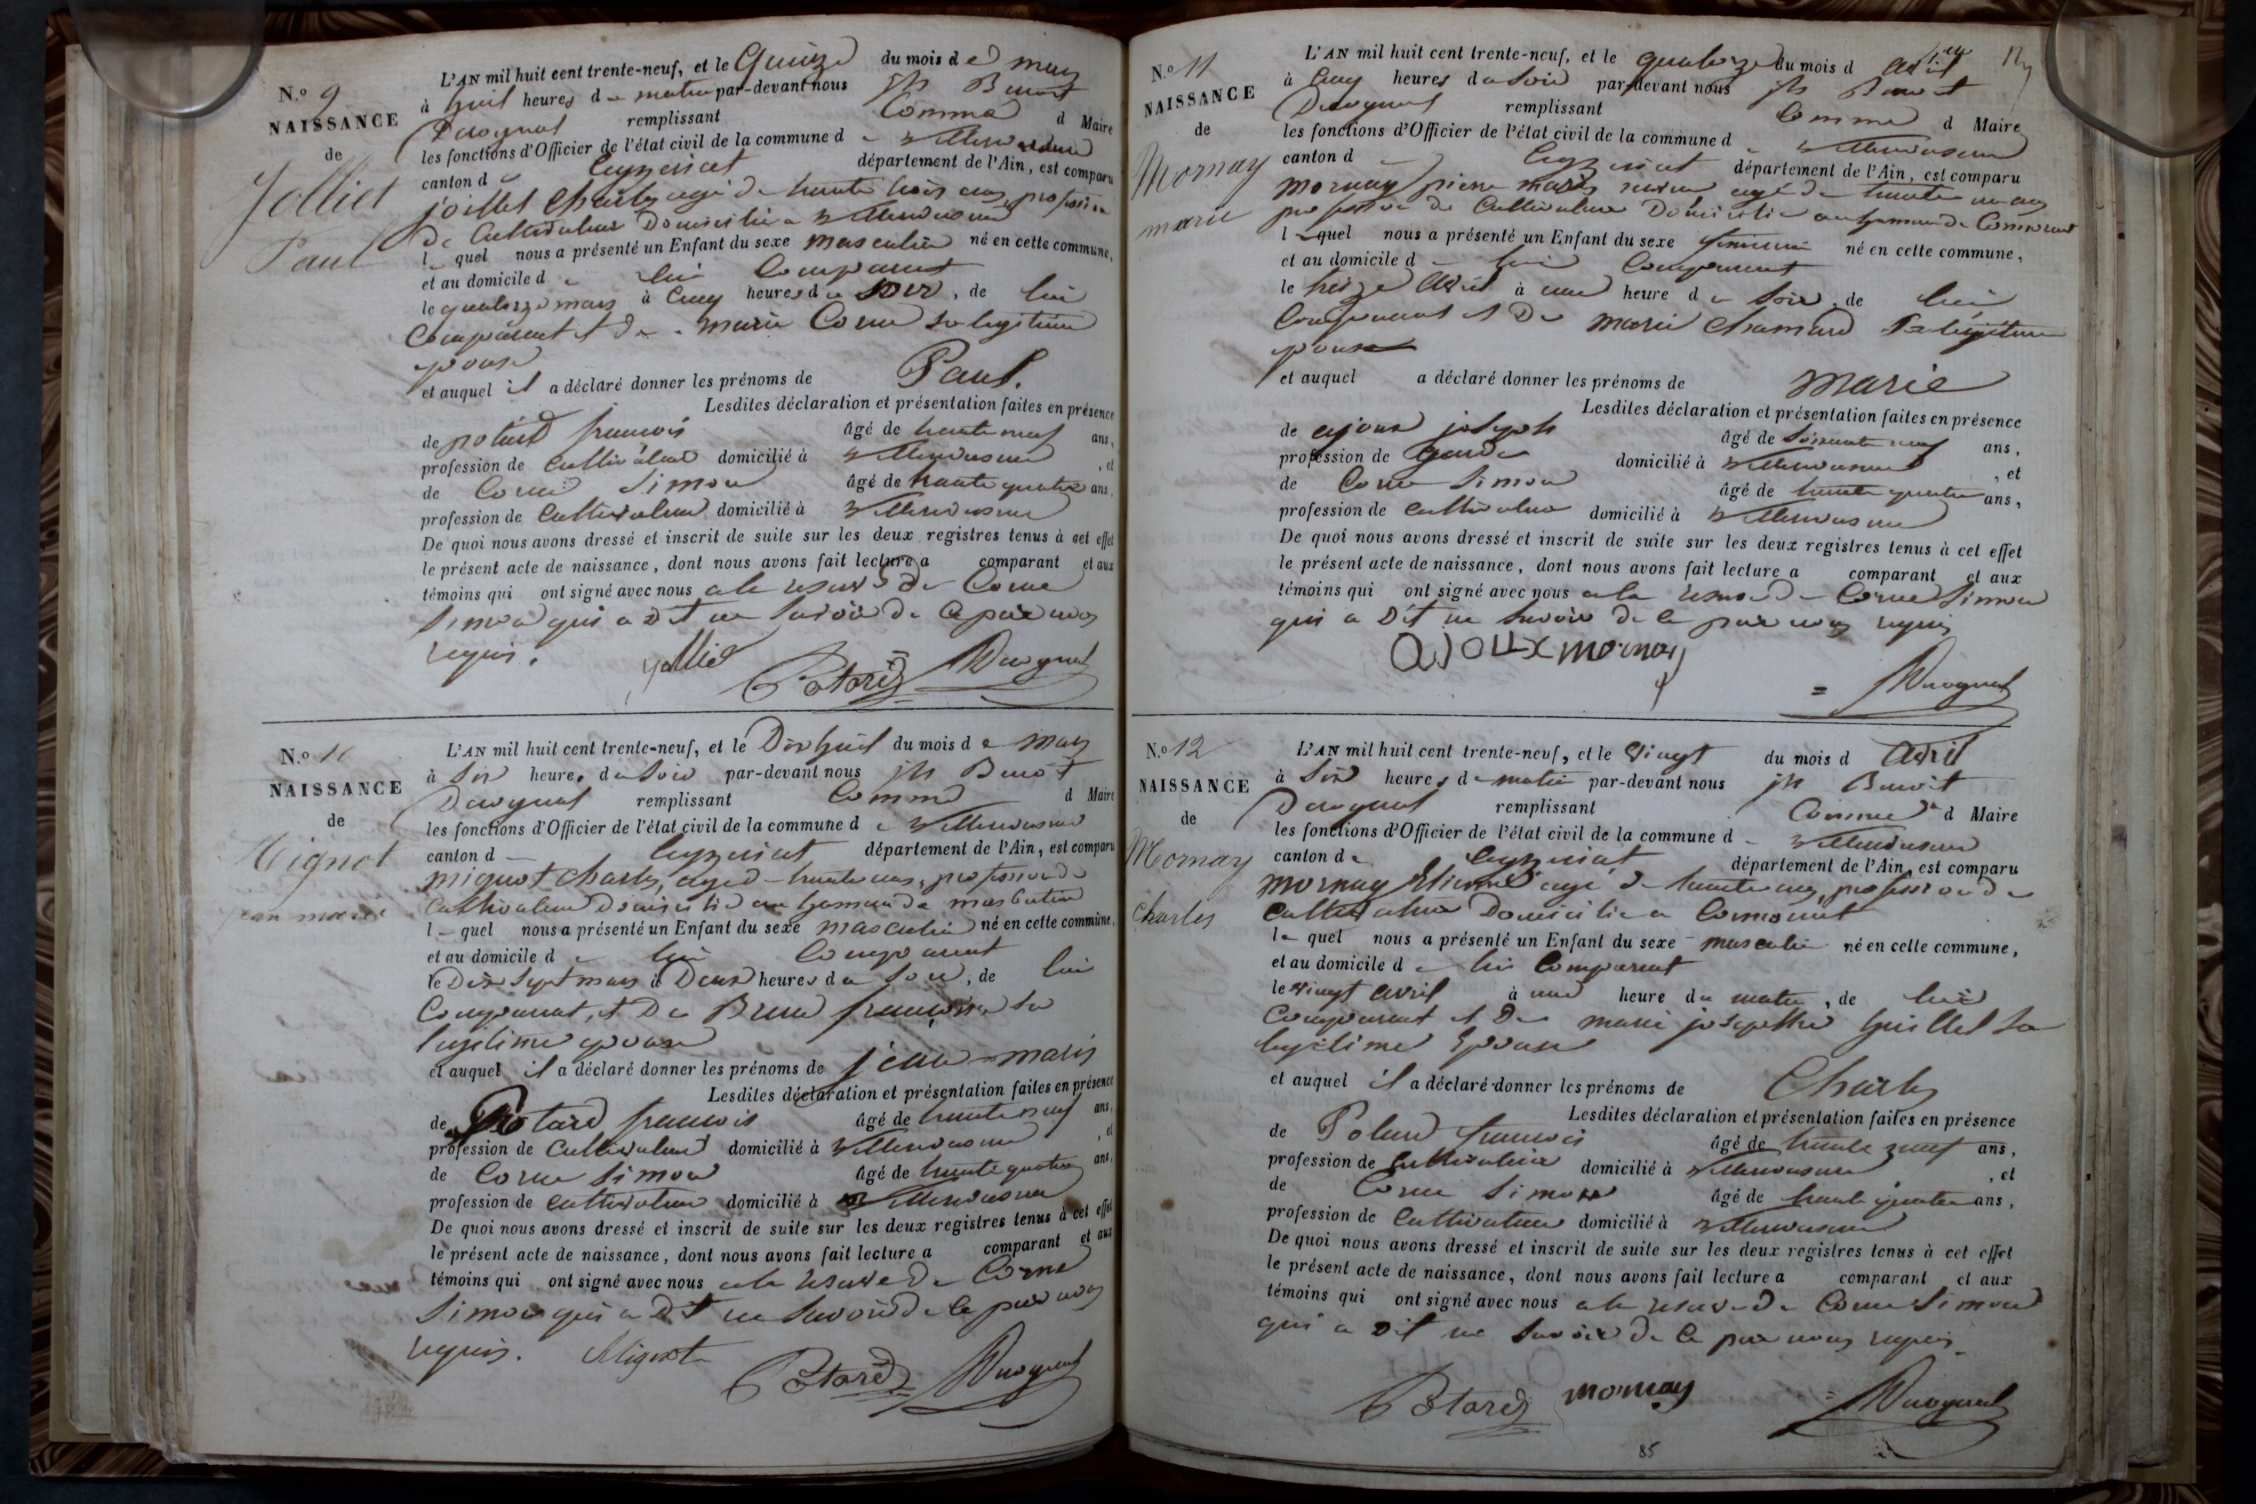 N.o 9
NAISSANCE
de
Jolliet
Paul
L'AN mil huit cent trente-neuf, et le Quinze du mois de mars
à huit heures du matin par-devant nous jh Benoit
Duvognal remplissant Comme d Maire
les fonctions d'Officier de l'état civil de la commune de Villereversure
canton de Ceyzeriat département de l'Ain, est comparu
joillet Charles agé de trente trois ans profession
de Cultivateur Domicilié a Villereversure
lequel nous a présenté un Enfant du sexe masculin né en cette commune,
et au domicile de lui Comparant
le quatorze mars à Cinq heures du soir, de lui
Comparant et de marie Corne sa legitime
epouse
et auquel il a déclaré donner les prénoms de Paul.
Lesdites déclaration et présentation faites en présence
de potard francois âgé de trente neuf ans,
profession de Cultivateur domicilié à Villereversure, et
de Corne Simon âgé de trente quatre ans,
profession de Cultivateur domicilié à Villereversure
De quoi nous avons dressé et inscrit de suite sur les deux registres tenus à cet effet
le présent acte de naissance, dont nous avons fait lecture a comparant et aux
témoins qui ont signé avec nous a la reserve de Corne
Simon qui a dit ne savoir de ce par nous
requis.
Jolliet Potard
N.o 10
NAISSANCE
de
Mignot
jean marie
L'AN mil huit cent trente-neuf, et le Dix huit du mois de mars
à Six heures du Soir par-devant nous jh Benoit
remplissant Comme d Maire
les fonctions d'Officier de l'état civil de la commune de Villereversure
canton de Ceyzeriat département de l'Ain, est comparu
mignot Charles, agé de trente ans, profession de
Cultivateur Domicilié au hameau de
lequel nous a présenté un Enfant du sexe masculin né en cette commune,
et au domicile de lui Comparant
le Dix Sept mars à Deux heures du Soir, de lui
Comparant, et De Brun francoise Sa
legitime epouse
et auquel il a déclaré donner les prénoms de jean-marie
Lesdites déclaration et présentation faites en présence
de Potard francois âgé de trente neuf ans,
profession de Cultivateur domicilié à Villereversure, et
de Corne Simon âgé de trente quatre ans,
profession de Cultivateur domicilié à Villereversure
De quoi nous avons dressé et inscrit de suite sur les deux registres tenus à cet effet
le présent acte de naissance, dont nous avons fait lecture a comparant et aux
témoins qui ont signé avec nous a la reserve de Corne
Simon qui a dit ne Savoir de ce par nous
requis. Mignot
Potard
N.o 11
NAISSANCE
de
Mornay
marie
L'AN mil huit cent trente-neuf, et le quatorze du mois d avril
à Cinq heures du Soir par-devant nous jh Benoit
remplissant Comme d Maire
les fonctions d'Officier de l'état civil de la commune de Villereversure
canton de Ceyzeriat département de l'Ain, est comparu
Mornay pierre marie agé de trente un ans
profession de Cultivateur Domicilié au hameau de
lequel nous a présenté un Enfant du sexe feminin né en cette commune,
et au domicile de lui Comparant
le treize Avril à une heure du Soir, de lui
Comparant et De marie Chamard Sa legitime
epouse
et auquel a déclaré donner les prénoms de marie
Lesdites déclaration et présentation faites en présence
de ajoux joseph âgé de soixante neuf ans,
profession de Garde domicilié à Villereversure, et
de Corne Simon âgé de trente quatre ans,
profession de Cultivateur domicilié à Villereversure
De quoi nous avons dressé et inscrit de suite sur les deux registres tenus à cet effet
le présent acte de naissance, dont nous avons fait lecture a comparant et aux
témoins qui ont signé avec nous a la reserve de Corne Simon
qui a Dit ne Savoir de ce par nous requis
AJOUX mornay
N.o 12
NAISSANCE
de
Mornay
Charles
L'AN mil huit cent trente-neuf, et le Vingt du mois d Avril
à Six heures du matin par-devant nous jh Benoit
remplissant Comme d Maire
les fonctions d'Officier de l'état civil de la commune de Villereversure
canton de Ceyzeriat département de l'Ain, est comparu
Mornay Etienne agé de trente ans, profession de
Cultivateur Domicilié a
lequel nous a présenté un Enfant du sexe masculin né en cette commune,
et au domicile de lui Comparant
le Vingt avril à une heure du matin, de lui
Comparant et De marie josephte huillet Sa
legitime Epouse
et auquel il a déclaré donner les prénoms de Charles
Lesdites déclaration et présentation faites en présence
de Potard francois âgé de trente neuf ans,
profession de Cultivateur domicilié à Villereversure, et
de Corne Simon âgé de trente quatre ans,
profession de Cultivateur domicilié à Villereversure
De quoi nous avons dressé et inscrit de suite sur les deux registres tenus à cet effet
le présent acte de naissance, dont nous avons fait lecture a comparant et aux
témoins qui ont signé avec nous a la reserve de Corne Simon
qui a Dit ne Savoir De ce par nous requis.
Potard mornay
85